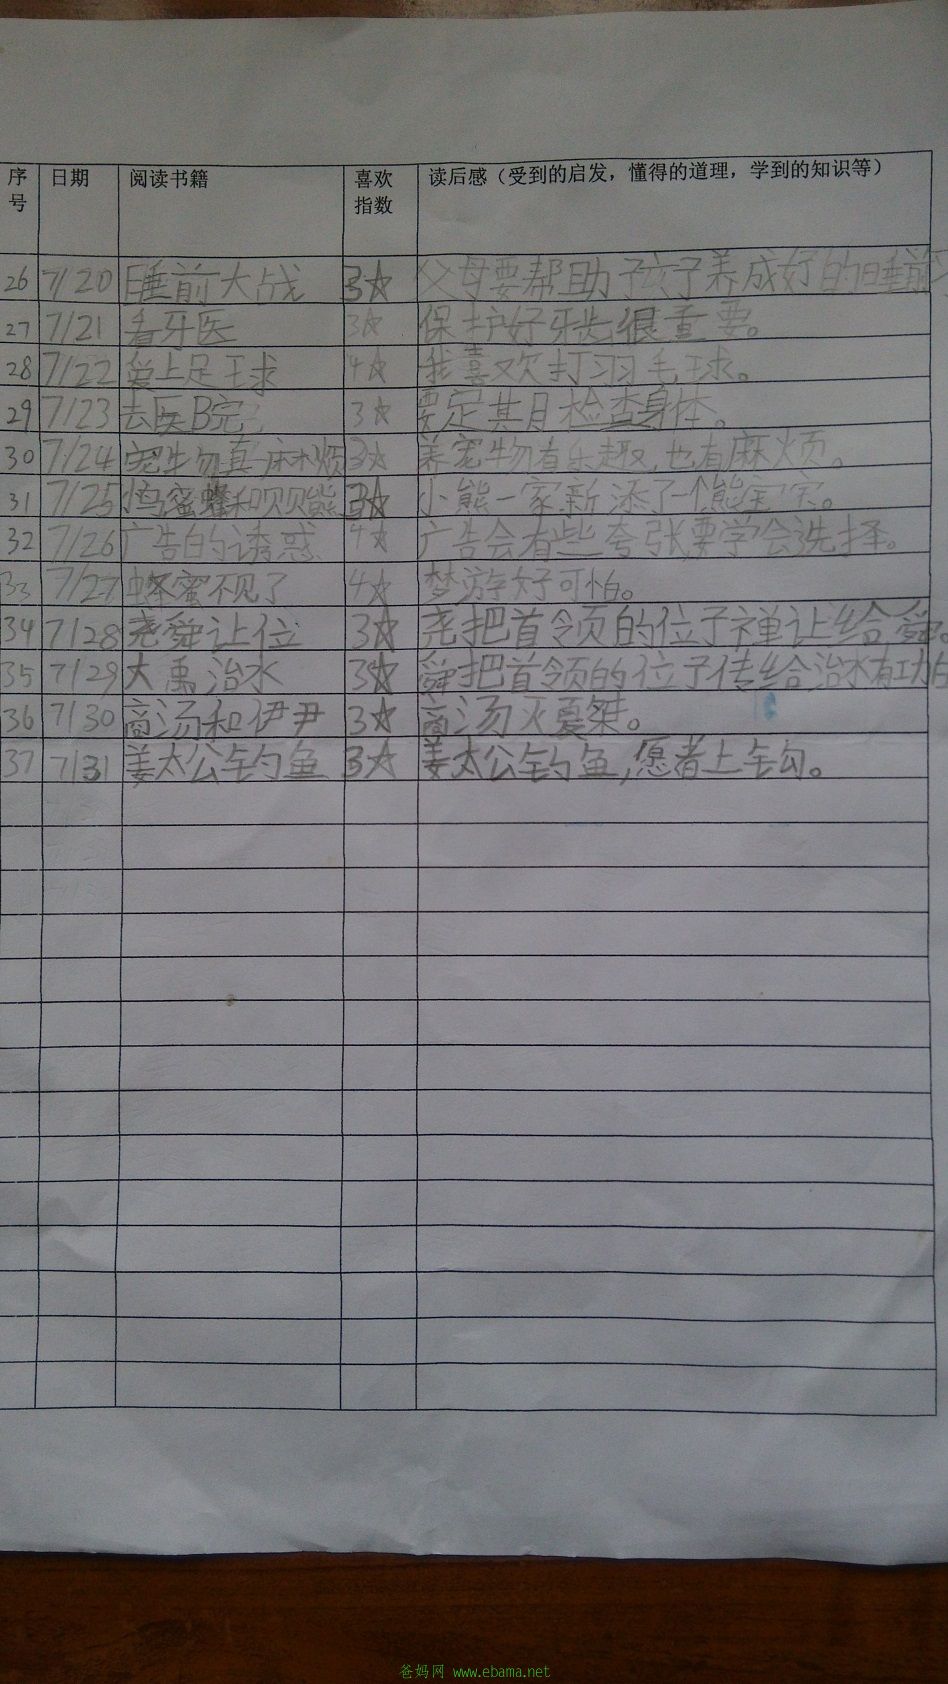 序号 日期 阅读书籍 喜欢指数 读后感（受到的启发，懂得的道理，学到的知识等）
26 7/20 睡前大战 3☆ 父母要帮助孩子养成好的睡前
27 7/21 看牙医 3☆ 保护好牙齿很重要。
28 7/22 爱上足球 4☆ 我喜欢打羽毛球。
29 7/23 去医院 3☆ 要定其月检查身体。
30 7/24 宠生物真麻烦 3☆ 养宠物有乐趣,也有麻烦。
31 7/25 蜜蜂和贝贝熊 3☆ 小熊一家新添了一个熊宝宝。
32 7/26 广告的诱惑 4☆ 广告会有些夸张要学会选择。
33 7/27 蜂蜜不见了 4☆ 梦游好可怕。
34 7/28 尧舜让位 3☆ 尧把首领的位子禅让给舜
35 7/29 大禹治水 3☆ 舜把首领的位子传给治水有功的
36 7/30 商汤和伊尹 3☆ 商汤灭夏桀。
37 7/31 姜太公钓鱼 3☆ 姜太公钓鱼,愿者上钩。
爸妈网 www.ebama.net